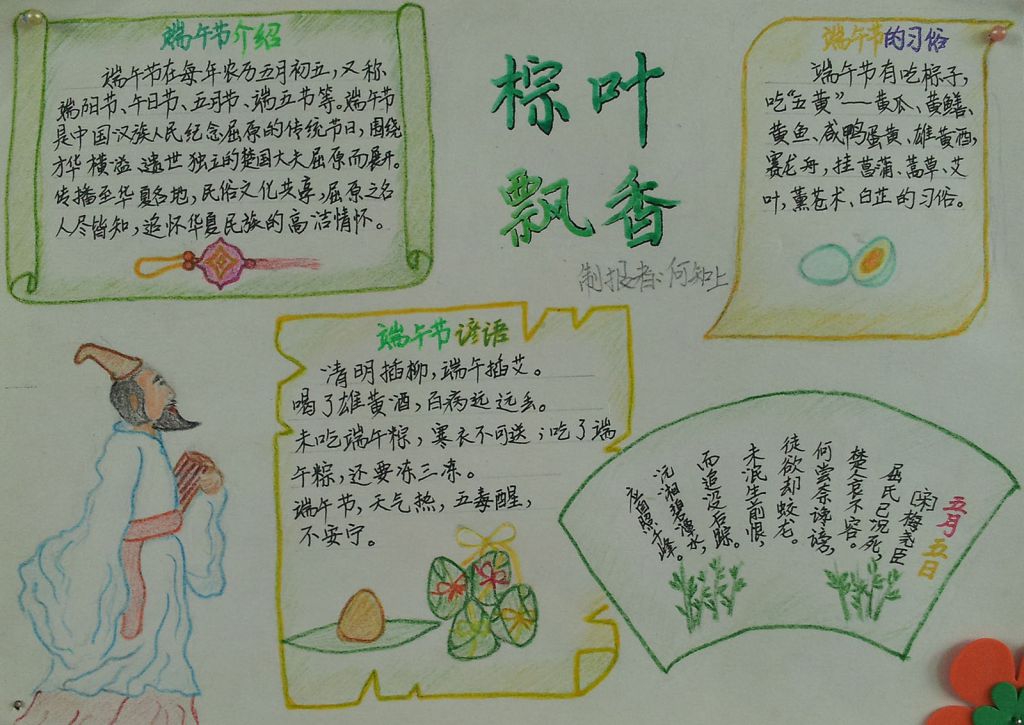 端午节介绍
端午节在每年农历五月初五，又称
端阳节、午日节、五月节、端五节等。端午节
是中国汉族人民纪念屈原的传统节日，围绕
才华横溢、遗世独立的楚国大夫屈原而展开。
传播至华夏各地，民俗文化共享，屈原之名
人尽皆知，追怀华夏民族的高洁情怀。
棕叶
飘香
制报者：何知上
端午节的习俗
端午节有吃棕子，
吃“五黄”——黄瓜、黄鳝、
黄鱼、咸鸭蛋黄、雄黄酒，
赛龙舟，挂菖蒲、蒿草、艾
叶，薰苍术、白芷的习俗。
端午节谚语
清明插柳，端午插艾。
喝了雄黄酒，百病远远丢。
未吃端午粽，寒衣不可送；吃了端
午粽，还要冻三冻。
端午节，天气热，五毒醒，
不安宁。
五月五日
〔宋〕梅尧臣
屈氏已沉死，
楚人哀不容。
何尝奈谗谤，
徒欲却蛟龙。
未泯生前恨，
而追没后踪。
沅湘碧潭水，
应照千峰。